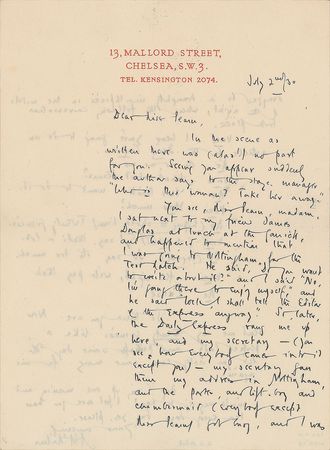 13, MALLORD STREET,
CHELSEA, S.W.3.
TEL. KENSINGTON 2074.
July 2nd/30
Dear Miss
In the scene as
written there was (alas!) no part
for you. Seeing you appear suddenly
the author says to the stage manager
"Who is this woman? Take her away."
You see, Miss, madam,
I sat next to my friend James
Douglas at lunch at the Garrick,
and happened to mention that
I was going to Nottingham, for the
Test Match. He said, "If you want
to write about it" and I said "No,
I'm going there to enjoy myself" and
he said "Well I shall tell the Editor
of the Express anyway." So, later,
the Daily Express rang me up
here, and my secretary — (you
see how everybody comes into it
except you) — my secretary gave
them my address in Nottingham,
and the porter, and lift-boy and
chambermaid (everybody except
Miss) got busy, and I was